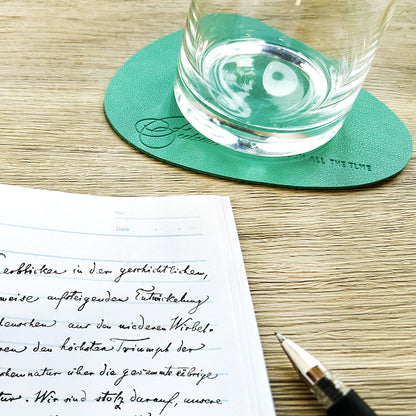 ALL THE TIME
No.
Date
erblicken in der geschichtlichen,
weise aufsteigenden Entwickelung
enschen aus den niederen Wirbel-
ren den höchsten Triumph der
chennatur über die gesammte übrige
tur. Wir sind stolz darauf, unsere